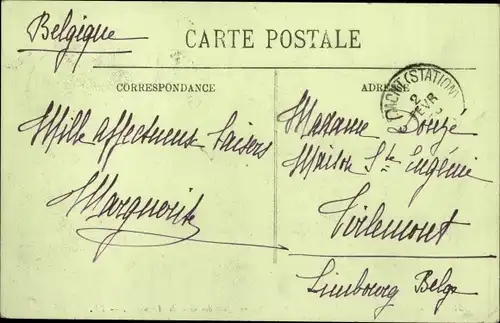 Belgique
CARTE POSTALE
CORRESPONDANCE
ADRESSE
(STATION)
2
FEVR
Mille affectueux baisers
Marguerite
Madame
Maison Ste Eugénie
Tirlemont
Limbourg Belge